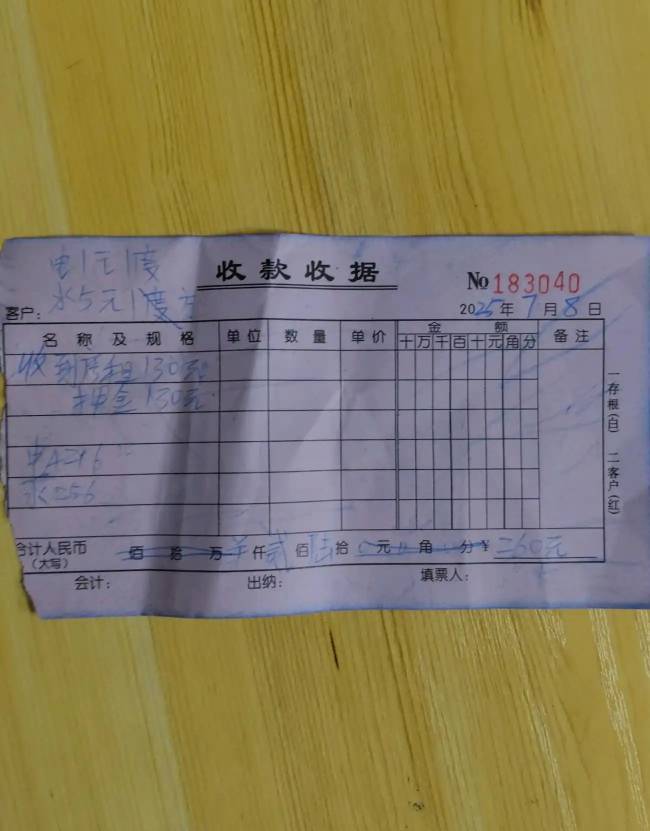 电1元1度
水5元1度
收款收据
No 183040
客户:
2025年7月8日
名称及规格 单位 数量 单价 金额 备注
十 万 千 百 十 元 角 分
收到房租130元
押金130元
电
水 056
合计人民币 佰 拾 万 仟 贰 佰 陆 拾 元 角 分 ¥ 260元
(大写)
会计: 出纳: 填票人:
一存根(白) 二客户(红)